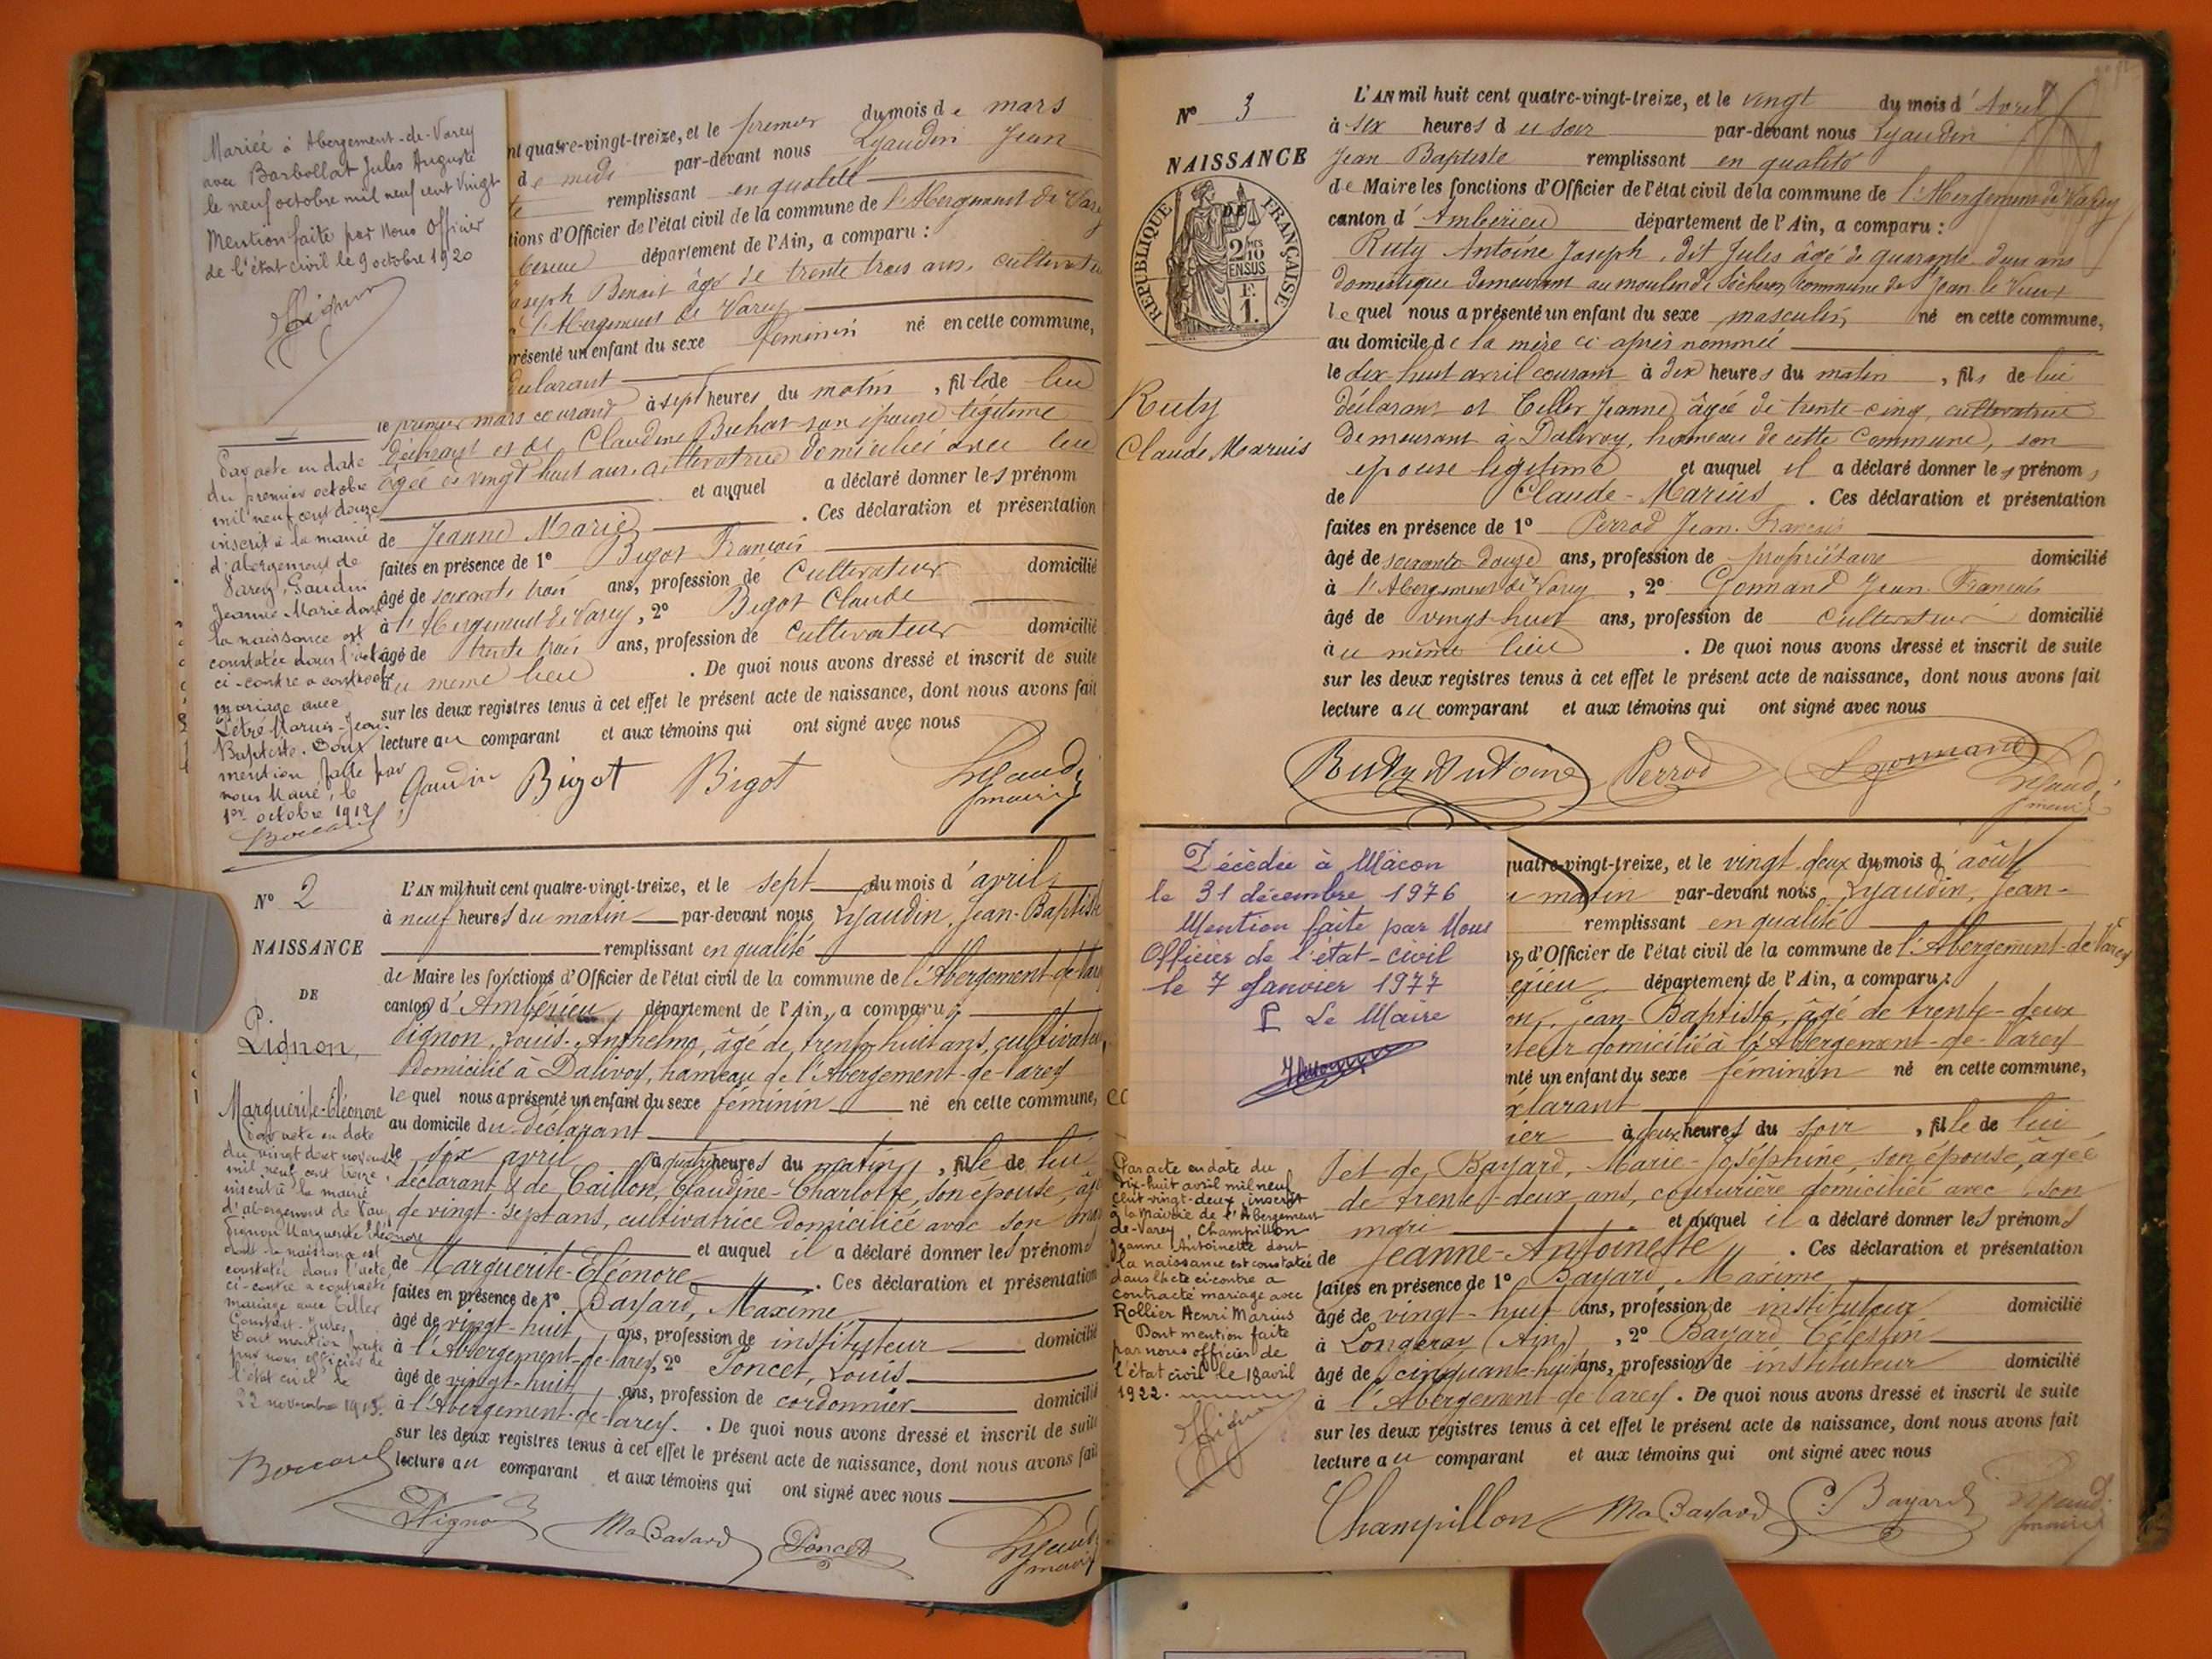 Mariée à Abergement-de-Varey
avec Barbollat Jules Auguste
le neuf octobre mil neuf cent vingt
Mention faite par Nous Officier
de l'état civil le 9 octobre 1920
nt quatre-vingt-treize, et le premier du mois de mars
de midi par-devant nous Lyaudin Jean
te remplissant en qualité
tions d'Officier de l'état civil de la commune de l'Abergement de Varey
berieu département de l'Ain, a comparu :
oseph Benoit âgé de trente trois ans, cultivateur
l'Abergement de Varey
résenté un enfant du sexe féminin né en cette commune,
éclarant
le premier mars courant à sept heures du matin, fille de lui
déclarant et de Claudine Buhat son épouse légitime
âgée de vingt huit ans, cultivatrice domiciliée avec lui
et auquel a déclaré donner les prénom
de Jeanne Marie . Ces déclaration et présentation
faites en présence de 1º Bigot François
âgé de soixante trois ans, profession de cultivateur domicilié
à l'Abergement de Varey, 2º Bigot Claude
âgé de trente trois ans, profession de cultivateur domicilié
au même lieu . De quoi nous avons dressé et inscrit de suite
sur les deux registres tenus à cet effet le présent acte de naissance, dont nous avons fait
lecture au comparant et aux témoins qui ont signé avec nous
Gaudin Bigot Bigot Lyaudin
maire
Par acte en date
du premier octobre
mil neuf cent douze
inscrit à la mairie
d'abergement de
Varey, Gaudin
Jeanne Marie dont
la naissance est
constatée dans l'acte
ci-contre a contracté
mariage avec
Marius-Jean-
Baptiste. Dont
mention faite par
nous Maire, le
1er octobre 1912
Nº 2
NAISSANCE
DE
Lignon,
Marguerite-Eléonore
L'AN mil huit cent quatre-vingt-treize, et le sept du mois d'avril
à neuf heures du matin par-devant nous Lyaudin, Jean-Baptiste
remplissant en qualité
de Maire les fonctions d'Officier de l'état civil de la commune de l'Abergement-de-Varey
canton d'Ambérieu département de l'Ain, a comparu :
Lignon, Louis-Anthelme, âgé de trente huit ans, cultivateur,
domicilié à Dalivoy, hameau de l'Abergement-de-Varey
lequel nous a présenté un enfant du sexe féminin né en cette commune,
au domicile du déclarant
le six avril à quatre heures du matin, fille de lui
déclarant & de Caillon, Claudine-Charlotte, son épouse, âgée
de vingt-sept ans, cultivatrice domiciliée avec son mari
et auquel il a déclaré donner les prénoms
de Marguerite-Eléonore . Ces déclaration et présentation
faites en présence de 1º Bayard, Maxime
âgé de vingt-huit ans, profession de instituteur domicilié
à l'Abergement-de-Varey, 2º Poncet, Louis
âgé de vingt-huit ans, profession de cordonnier domicilié
à l'Abergement-de-Varey. . De quoi nous avons dressé et inscrit de suite
sur les deux registres tenus à cet effet le présent acte de naissance, dont nous avons fait
lecture au comparant et aux témoins qui ont signé avec nous
Lignon Ma Bayard Poncet Lyaudin
maire
Par acte en date
du vingt deux novembre
mil neuf cent treize
inscrit à la mairie
d'abergement de Varey
Lignon Marguerite Eléonore
dont la naissance est
constatée dans l'acte
ci-contre a contracté
mariage avec Celler
Constant-Jules.
Dont mention faite
par nous officier de
l'état civil le
22 novembre 1913.
Nº 3
NAISSANCE
DE
REPUBLIQUE FRANÇAISE
2/10 EN SUS
1 F.
Ruty
Claude Marius
L'AN mil huit cent quatre-vingt-treize, et le vingt du mois d'Avril
à six heures du soir par-devant nous Lyaudin
Jean Baptiste remplissant en qualité
de Maire les fonctions d'Officier de l'état civil de la commune de l'Abergement de Varey
canton d'Ambérieu département de l'Ain, a comparu :
Ruty Antoine Joseph, dit Jules âgé de quarante deux ans
domestique demeurant au moulin de Sècheron, commune de St Jean le Vieux
lequel nous a présenté un enfant du sexe masculin né en cette commune,
au domicile de la mère ci après nommée
le dix huit avril courant à dix heures du matin, fils de lui
déclarant et Celler Jeanne, âgée de trente-cinq, cultivatrice
demeurant à Dalivoy, hameau de cette commune, son
épouse légitime et auquel il a déclaré donner les prénoms
de Claude-Marius . Ces déclaration et présentation
faites en présence de 1º Perrod Jean-François
âgé de soixante douze ans, profession de propriétaire domicilié
à l'Abergement de Varey, 2º Gonnand Jean-François
âgé de vingt huit ans, profession de cultivateur domicilié
au même lieu . De quoi nous avons dressé et inscrit de suite
sur les deux registres tenus à cet effet le présent acte de naissance, dont nous avons fait
lecture au comparant et aux témoins qui ont signé avec nous
Ruty Antoine Perrod Gonnand Lyaudin
maire
Décédée à Mâcon
le 31 décembre 1976
Mention faite par Nous
Officier de l'état-civil
le 7 Janvier 1977
P Le Maire
quatre-vingt-treize, et le vingt deux du mois d'août
u matin par-devant nous Lyaudin, Jean-
remplissant en qualité
ns d'Officier de l'état civil de la commune de l'Abergement-de-Varey
érieu département de l'Ain, a comparu :
on, Jean-Baptiste, âgé de trente-deux
teur domicilié à l'Abergement-de-Varey
nté un enfant du sexe féminin né en cette commune,
éclarant
ier à deux heures du soir, fille de lui
et de Bayard, Marie-Joséphine, son épouse, âgée
de trente-deux ans, couturière domiciliée avec son
mari et auquel il a déclaré donner les prénoms
de Jeanne-Antoinette . Ces déclaration et présentation
faites en présence de 1º Bayard, Maxime
âgé de vingt-huit ans, profession de instituteur domicilié
à Longeray (Ain), 2º Bayard Célestin
âgé de cinquante-huit ans, profession de instituteur domicilié
à l'Abergement-de-Varey . De quoi nous avons dressé et inscrit de suite
sur les deux registres tenus à cet effet le présent acte de naissance, dont nous avons fait
lecture au comparant et aux témoins qui ont signé avec nous
Champillon Ma Bayard C. Bayard Lyaudin
maire
Par acte en date du
dix-huit avril mil neuf
cent vingt-deux, inscrit
à la Mairie de l'Abergement
de-Varey, Champillon
Jeanne Antoinette dont
la naissance est constatée
dans l'acte ci-contre a
contracté mariage avec
Rollier Henri Marius
Dont mention faite
par nous officier de
l'état civil le 18 avril
1922.